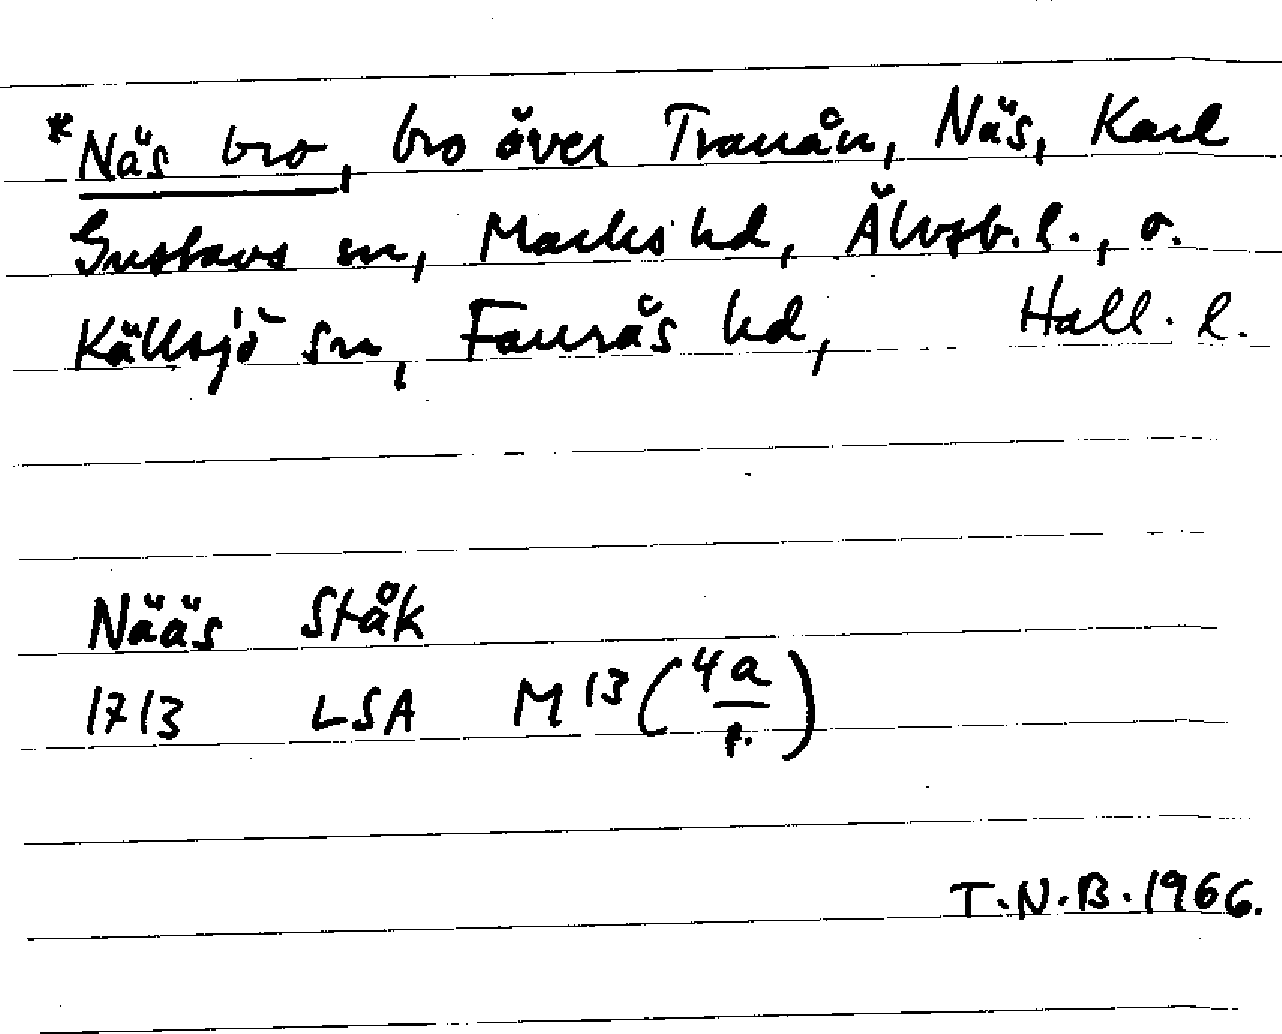 *Näs bro, bro över Tranån, Näs, Karl
Gustavs sn, Marks hd, Älvsb. l., o.
Källsjö sn, Faurås hd, Hall. l.
Nääs Ståk
1713 LSA M 13 (4a/f.)
T.N.B. 1966.